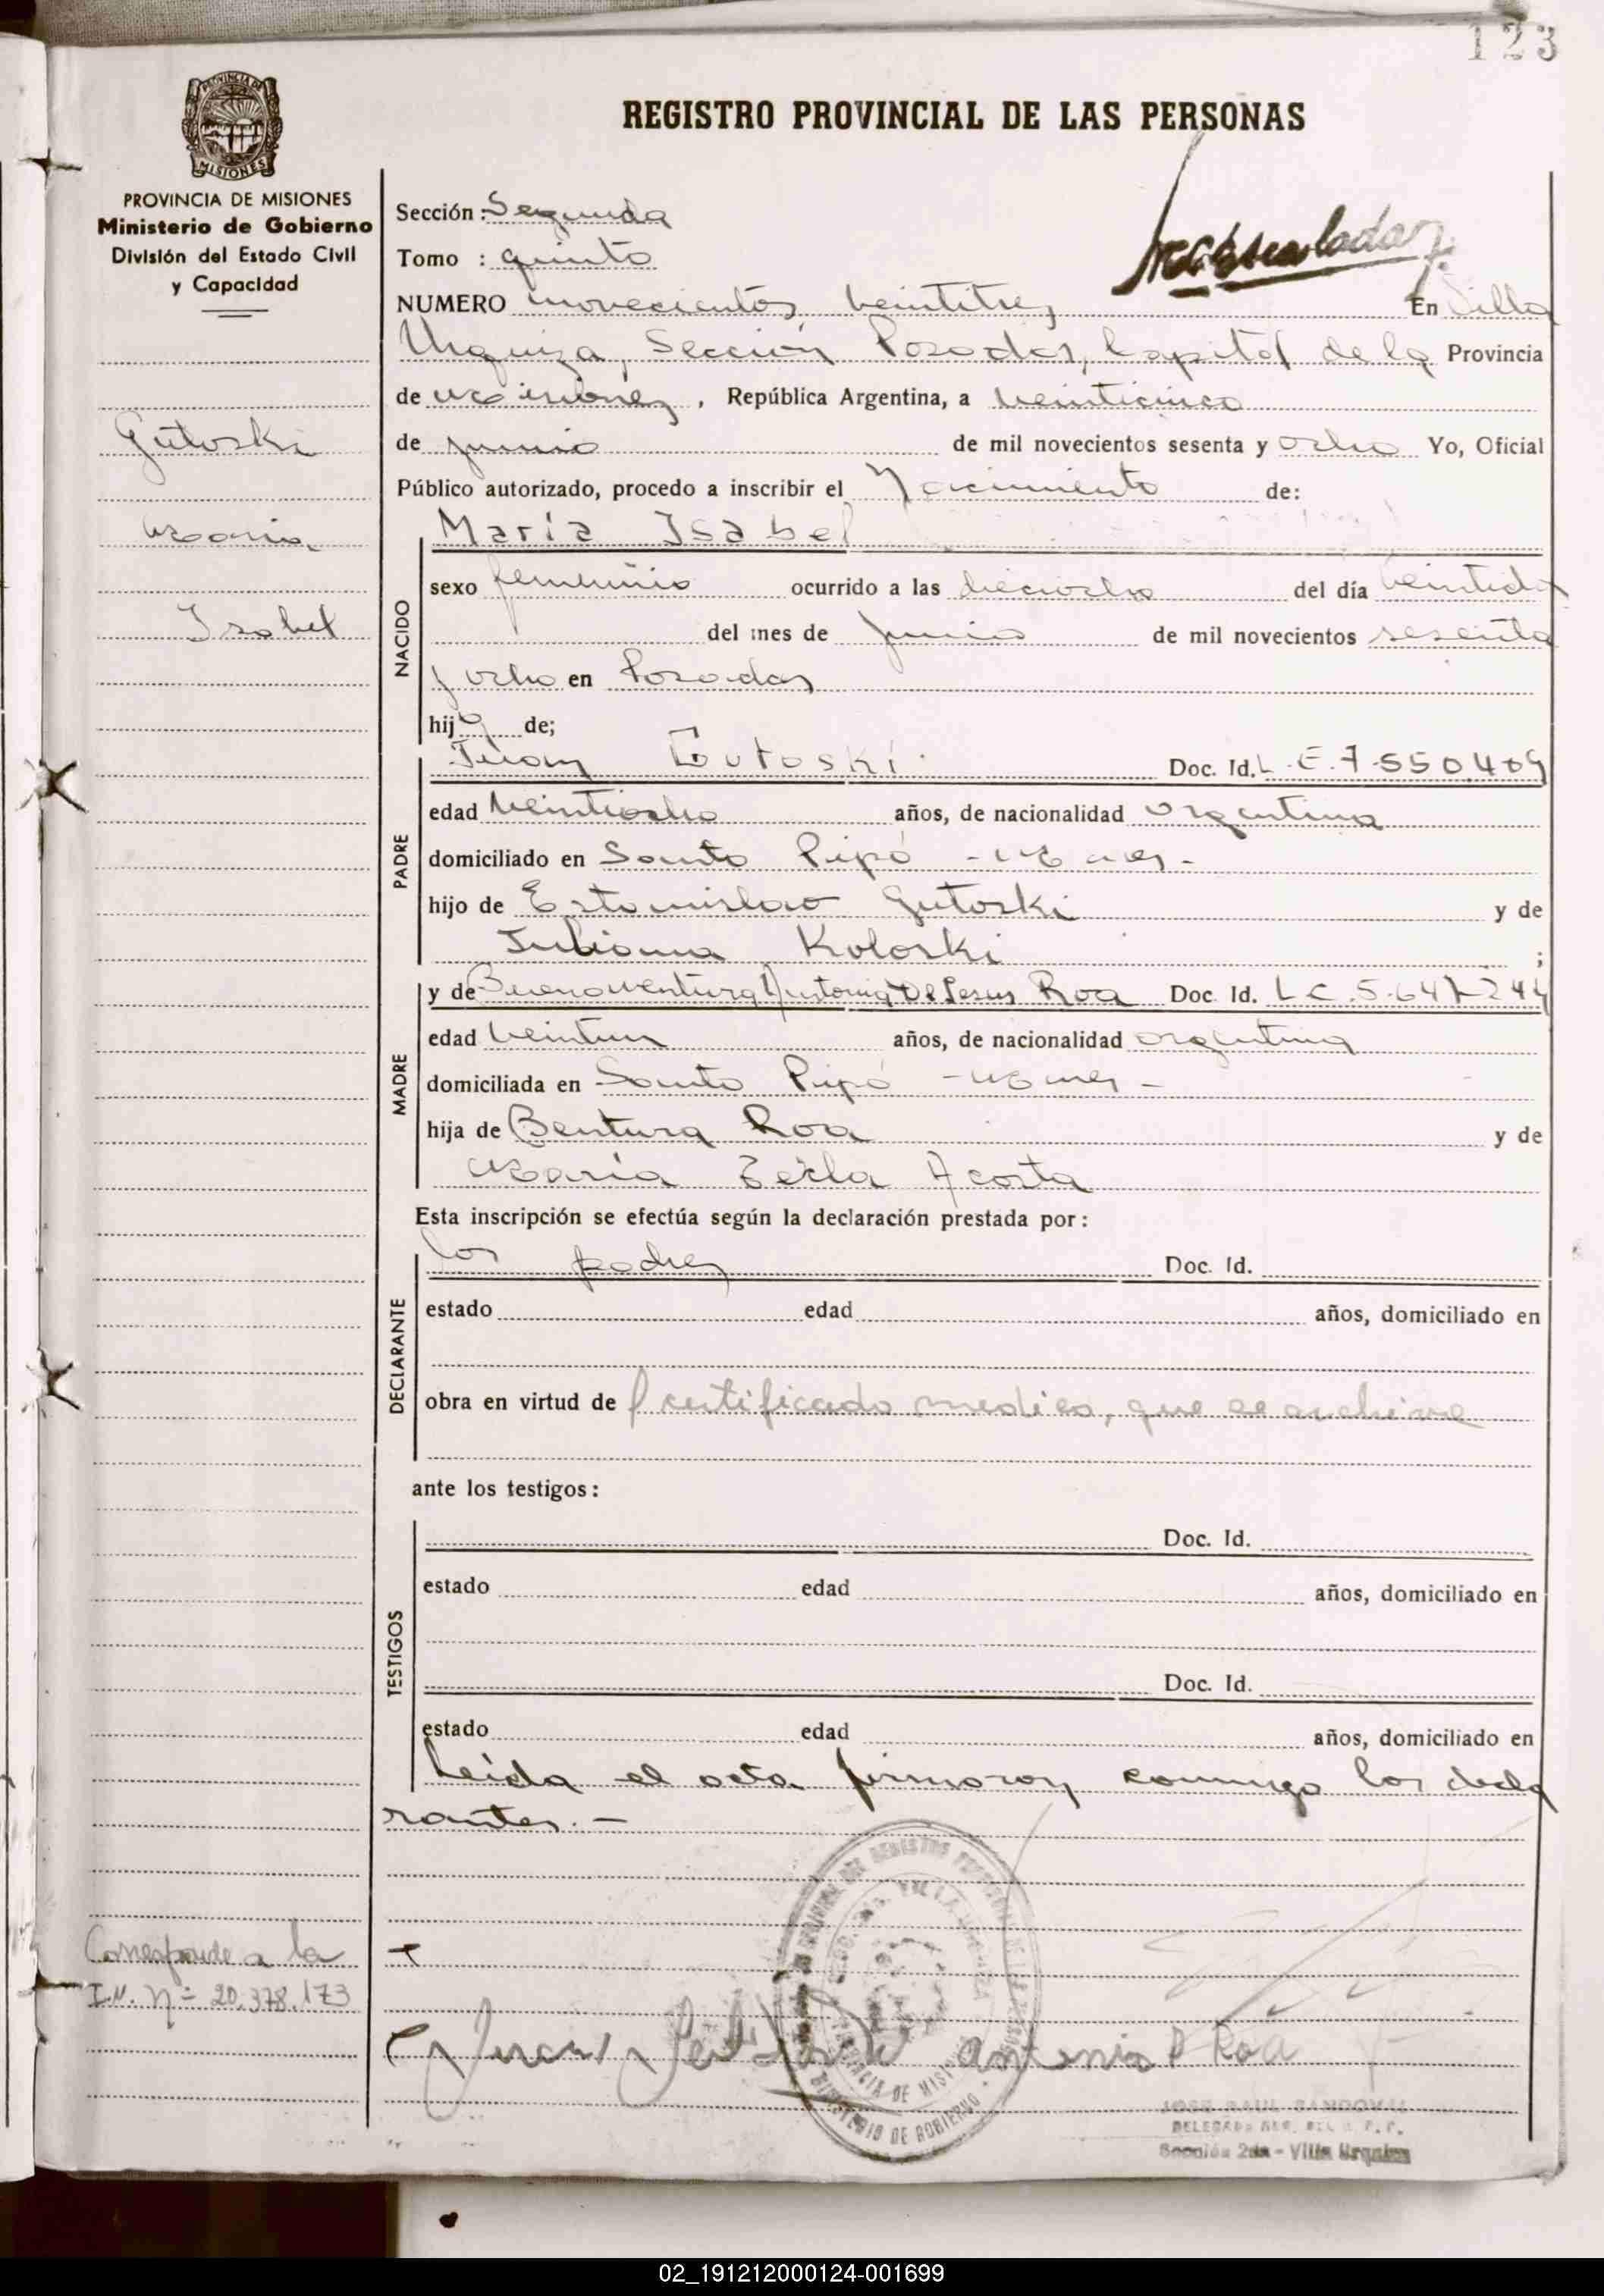 123
REGISTRO PROVINCIAL DE LAS PERSONAS
PROVINCIA DE MISIONES
Ministerio de Gobierno
División del Estado Civil
y Capacidad
Gutoski
Maria
Isabel
Corresponde a la
I.N. Nº 20.378.173
Sección: Segunda
Tomo : quinto
NUMERO novecientos veintitres En Villa
Urquiza, Sección Posadas, Capital de la Provincia
de Misiones, República Argentina, a veinticinco
de junio de mil novecientos sesenta y ocho Yo, Oficial
Público autorizado, procedo a inscribir el Nacimiento de:
NACIDO
María Isabel
sexo femenino ocurrido a las dieciocho del día veintidos
del mes de junio de mil novecientos sesenta
y ocho en Posadas
hija de;
PADRE
Juan Gutoski Doc. Id. L.E. 7.550.409
edad veintiocho años, de nacionalidad argentina
domiciliado en Santo Pipó - Mnes -
hijo de Estanislao Gutoski y de
Juliana Koloski ;
MADRE
y de Buenaventura Antonia De Jesus Roa Doc. Id. L.C. 5.647.244
edad veintiun años, de nacionalidad argentina
domiciliada en Santo Pipó - Mnes -
hija de Bentura Roa y de
María Tecla Acosta
Esta inscripción se efectúa según la declaración prestada por:
DECLARANTE
los padres Doc. Id.
estado edad años, domiciliado en
obra en virtud de certificado medico, que se archiva
ante los testigos:
TESTIGOS
Doc. Id.
estado edad años, domiciliado en
Doc. Id.
estado edad años, domiciliado en
Leída el acta firmaron conmigo los decla
rantes. -
Antonia D Roa
JOSE RAUL SANDOVAL
Sección 2da - Villa Urquiza
02_191212000124-001699